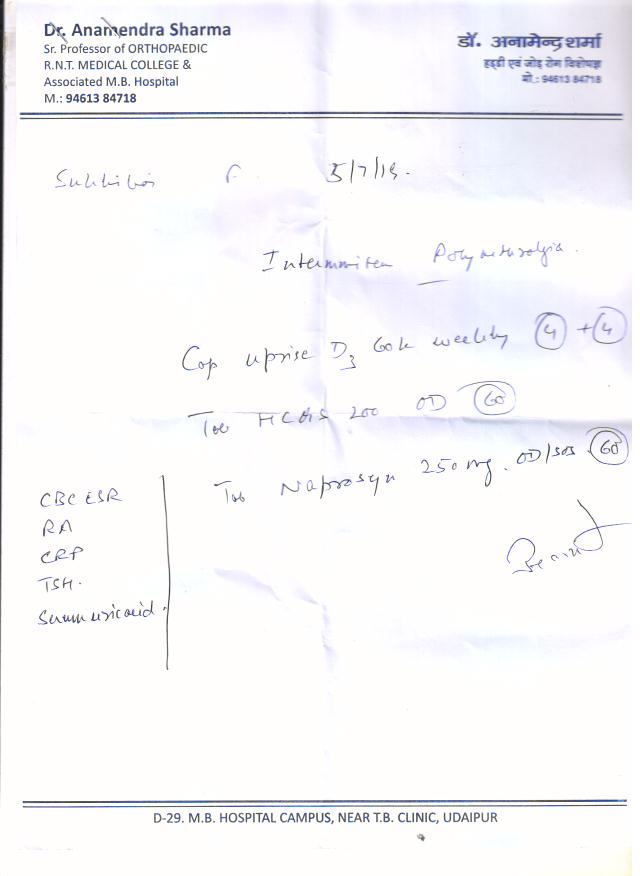 Dr. Anamendra Sharma
Sr. Professor of ORTHOPAEDIC
R.N.T. MEDICAL COLLEGE &
Associated M.B. Hospital
M.: 94613 84718
डॉ. अनामेन्द्र शर्मा
हड्डी एवं जोड़ रोग विशेषज्ञ
मो.: 94613 84718
F 5/7/19.
Polyarthralgia.
Cap uprise D3 60k weekly 4 + 4
Tab HCQS 200 OD 60
Tab Naprosyn 250 mg. OD/SOS 60
CBC ESR
RA
CRP
TSH.
Serum uric acid.
D-29. M.B. HOSPITAL CAMPUS, NEAR T.B. CLINIC, UDAIPUR